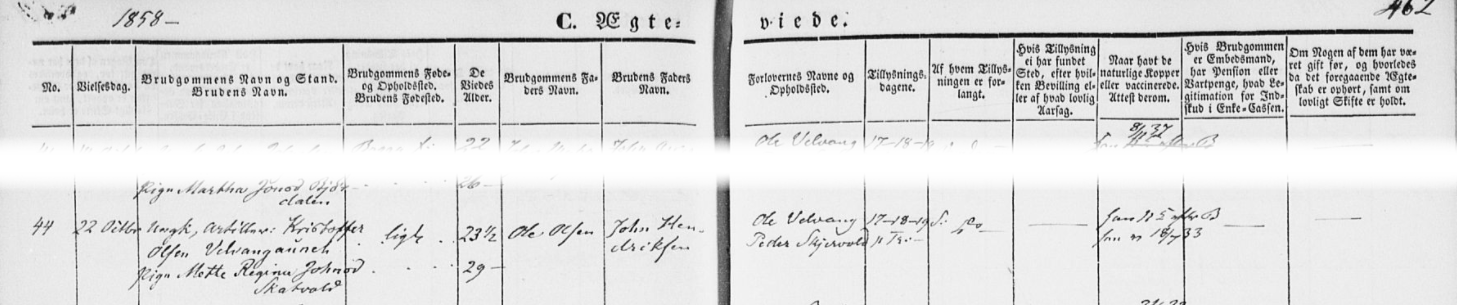 1858 –
C. Ægte-
viede.
462
No.
Vielsesdag.
Brudgommens Navn og Stand.
Brudens Navn.
Brudgommens Føde-
og Opholdssted.
Brudens Fødested.
De
Viedes
Alder.
Brudgommens Fa-
ders Navn.
Brudens Faders
Navn.
Forlovernes Navne og
Opholdssted.
Tillysnings-
dagene.
Af hvem Tillys-
ningen er for-
langt.
Hvis Tillysning
ei har fundet
Sted, efter hvil-
ken Bevilling el-
ler af hvad lovlig
Aarsag.
Naar havt de
naturlige Kopper
eller vaccinerede.
Attest derom.
Hvis Brudgommen
er Embedsmand,
har Pension eller
Vartpenge, hvad Le-
gitimation for Ind-
skud i Enke-Cassen.
Om Nogen af dem har væ-
ret gift før, og hvorledes
da det foregaaende Ægte-
skab er ophørt, samt om
lovligt Skifte er holdt.
Ole Velvang 17-18-19
Pige Martha Jonsd Bjør-
dalen
26 –
44 22 Octbr Ungk, Artiller: Kristoffer
Olsen Velvangaunet
ligl 23½ Ole Olsen John Hen-
driksen
Pige Mette Regine Johnsd
Skatvold
29 –
Ole Velvang 17-18-19
Peder Skjervold